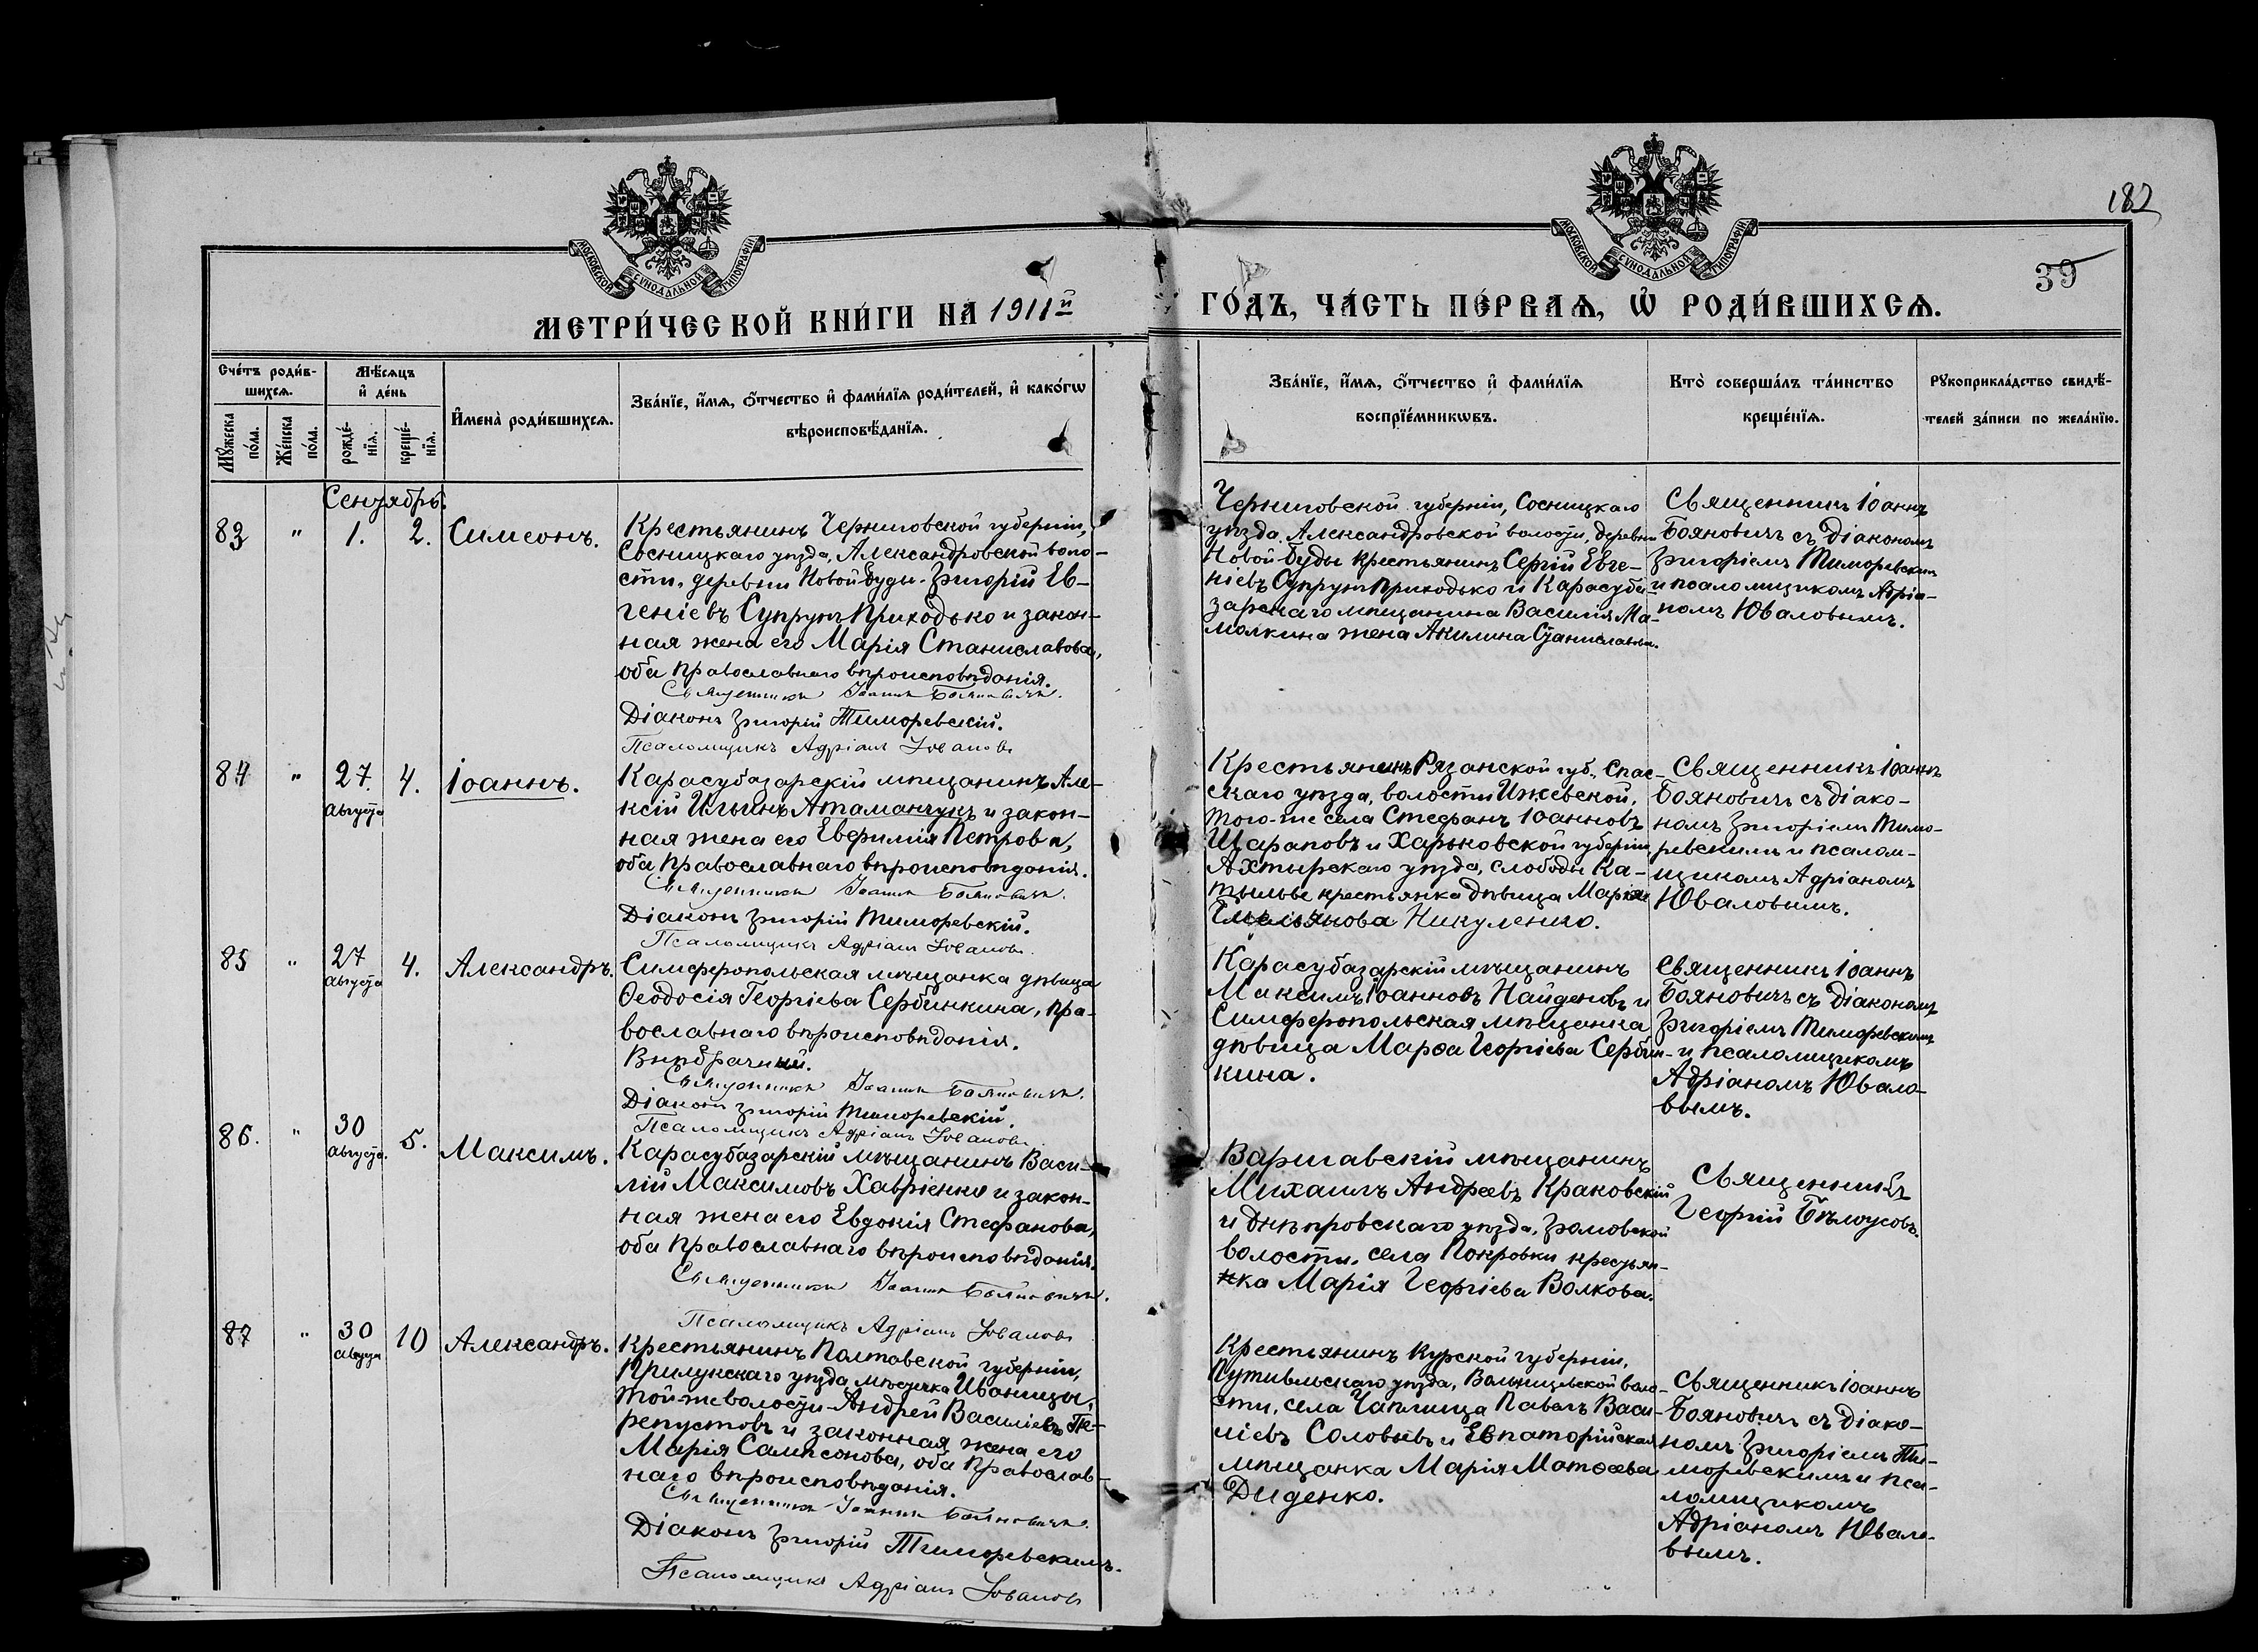 182
39
МОСКОВСКОЙ СѴНОДАЛЬНОЙ ТИПОГРАФІИ
МОСКОВСКОЙ СѴНОДАЛЬНОЙ ТИПОГРАФІИ
МЕТРИ́ЧЕСКОЙ КНИ́ГИ НА 1911й
ГО́ДЪ, ЧА́СТЬ ПЕ́РВАѦ, Ѡ҆ РОДИ́ВШИХСѦ.
Сче́тъ роди́в-
шихсѧ.
Мꙋ́жеска
по́ла.
Же́нска
по́ла.
Мѣ́сѧцъ
и҆ де́нь
рожде́-
нїѧ.
креще́-
нїѧ.
И҆мена̀ роди́вшихсѧ.
Зва́нїе, и҆́мѧ, ѻ҆́тчество и҆ фами́лїѧ роди́телей, и҆ како́гѡ
вѣроисповѣ́данїѧ.
Зва́нїе, и҆́мѧ, ѻ҆́тчество и҆ фами́лїѧ
воспрїе́мникѡвъ.
Кто̀ соверша́лъ та́инство
креще́нїѧ.
Рꙋкоприкла́дство свидѣ́-
телей за́писи по жела́нїю.
Сентябрь.
83
"
1.
2.
Симеонъ.
Крестьянинъ Черниговской губерніи,
Сосницкаго уѣзда, Александровской воло-
сти, деревни Новой Буды-Григорій Ев-
геніевъ Супрунъ Приходько и закон-
ная жена его Марія Станиславова,
оба православнаго вѣроисповѣданія.
Священникъ Іоаннъ Бояновичъ.
Діаконъ Григорій Тиморевскій.
Псаломщикъ Адріанъ Юваловъ
Черниговской губерніи, Сосницкаго
уѣзда, Александровской волости, деревни
Новой Буды крестьянинъ Сергій Евге-
ніевъ Супрунъ Приходько и Карасуба-
зарскаго мѣщанина Василія Ма-
молкина жена Акилина Станиславова.
Священникъ Іоаннъ
Бояновичъ съ діакономъ
Григоріемъ Тиморевскимъ
и псаломщикомъ Адріа-
номъ Юваловымъ.
84
"
27.
августа
4.
Іоаннъ.
Карасубазарскій мѣщанинъ Але-
ксій Ильинъ Атаманчукъ и закон-
ная жена его Евфимія Петрова,
оба православнаго вѣроисповѣданія.
Священникъ Іоаннъ Бояновичъ.
Діаконъ Григорій Тиморевскій.
Псаломщикъ Адріанъ Юваловъ.
Крестьянинъ Рязанской губ., Спас-
скаго уѣзда, волости Ижевской,
того-же села Стефанъ Іоанновъ
Шараповъ и Харьковской губерніи
Ахтырскаго уѣзда, слободы Ка-
тыльвы крестьянка дѣвица Марія
Емельянова Никуленко.
Священникъ Іоаннъ
Бояновичъ съ діако-
номъ Григоріемъ Тимо-
ревскимъ и псалом-
щикомъ Адріаномъ
Юваловымъ.
85
"
27
августа
4.
Александръ.
Симферопольская мѣщанка дѣвица
Ѳеодосія Георгіева Сербинкина, пра-
вославнаго вѣроисповѣданія.
Внѣбрачный.
Священникъ Іоаннъ Бояновичъ.
Діаконъ Григорій Тиморевскій.
Псаломщикъ Адріанъ Юваловъ.
Карасубазарскій мѣщанинъ
Максимъ Іоанновъ Найденовъ и
Симферопольская мѣщанка
дѣвица Марѳа Георгіева Сербин-
кина.
Священникъ Іоаннъ
Бояновичъ съ діакономъ
Григоріемъ Тиморевскимъ
и псаломщикомъ
Адріаномъ Ювало-
вымъ.
86.
"
30
августа.
5.
Максимъ.
Карасубазарскій мѣщанинъ Васи-
лій Максимовъ Хавріенко и закон-
ная жена его Евдокія Стефанова,
оба православнаго вѣроисповѣданія.
Священникъ Іоаннъ Бояновичъ.
Псаломщикъ Адріанъ Юваловъ
Варшавскій мѣщанинъ
Михаилъ Андреевъ Краковскій
и Днѣпровскаго уѣзда, Громовской
волости, села Покровки крестьян-
ка Марія Георгіева Волкова.
Священникъ
Георгій Бѣлоусовъ.
87
"
30
августа
10
Александръ.
Крестьянинъ Полтавской губерніи,
Прилукскаго уѣзда, мѣстечка Иваницы,
той-же волости-Андрей Василіевъ Пе-
репустовъ и законная жена его
Марія Сампсонова, оба православ-
наго вѣроисповѣданія.
Священникъ Іоаннъ Бояновичъ.
Діаконъ Григорій Тиморевскимъ.
Псаломщикъ Адріанъ Юваловъ
Крестьянинъ Курской губерніи,
Путивльскаго уѣзда, воло-
сти, села Чаплища Павелъ Васи-
ліевъ Соловьевъ и Евпаторійская
мѣщанка Марія Матѳеева
Диденко.
Священникъ Іоаннъ
Бояновичъ съ діако-
номъ Григоріемъ Ти-
моревскимъ и пса-
ломщикомъ
Адріаномъ Ювало-
вымъ.